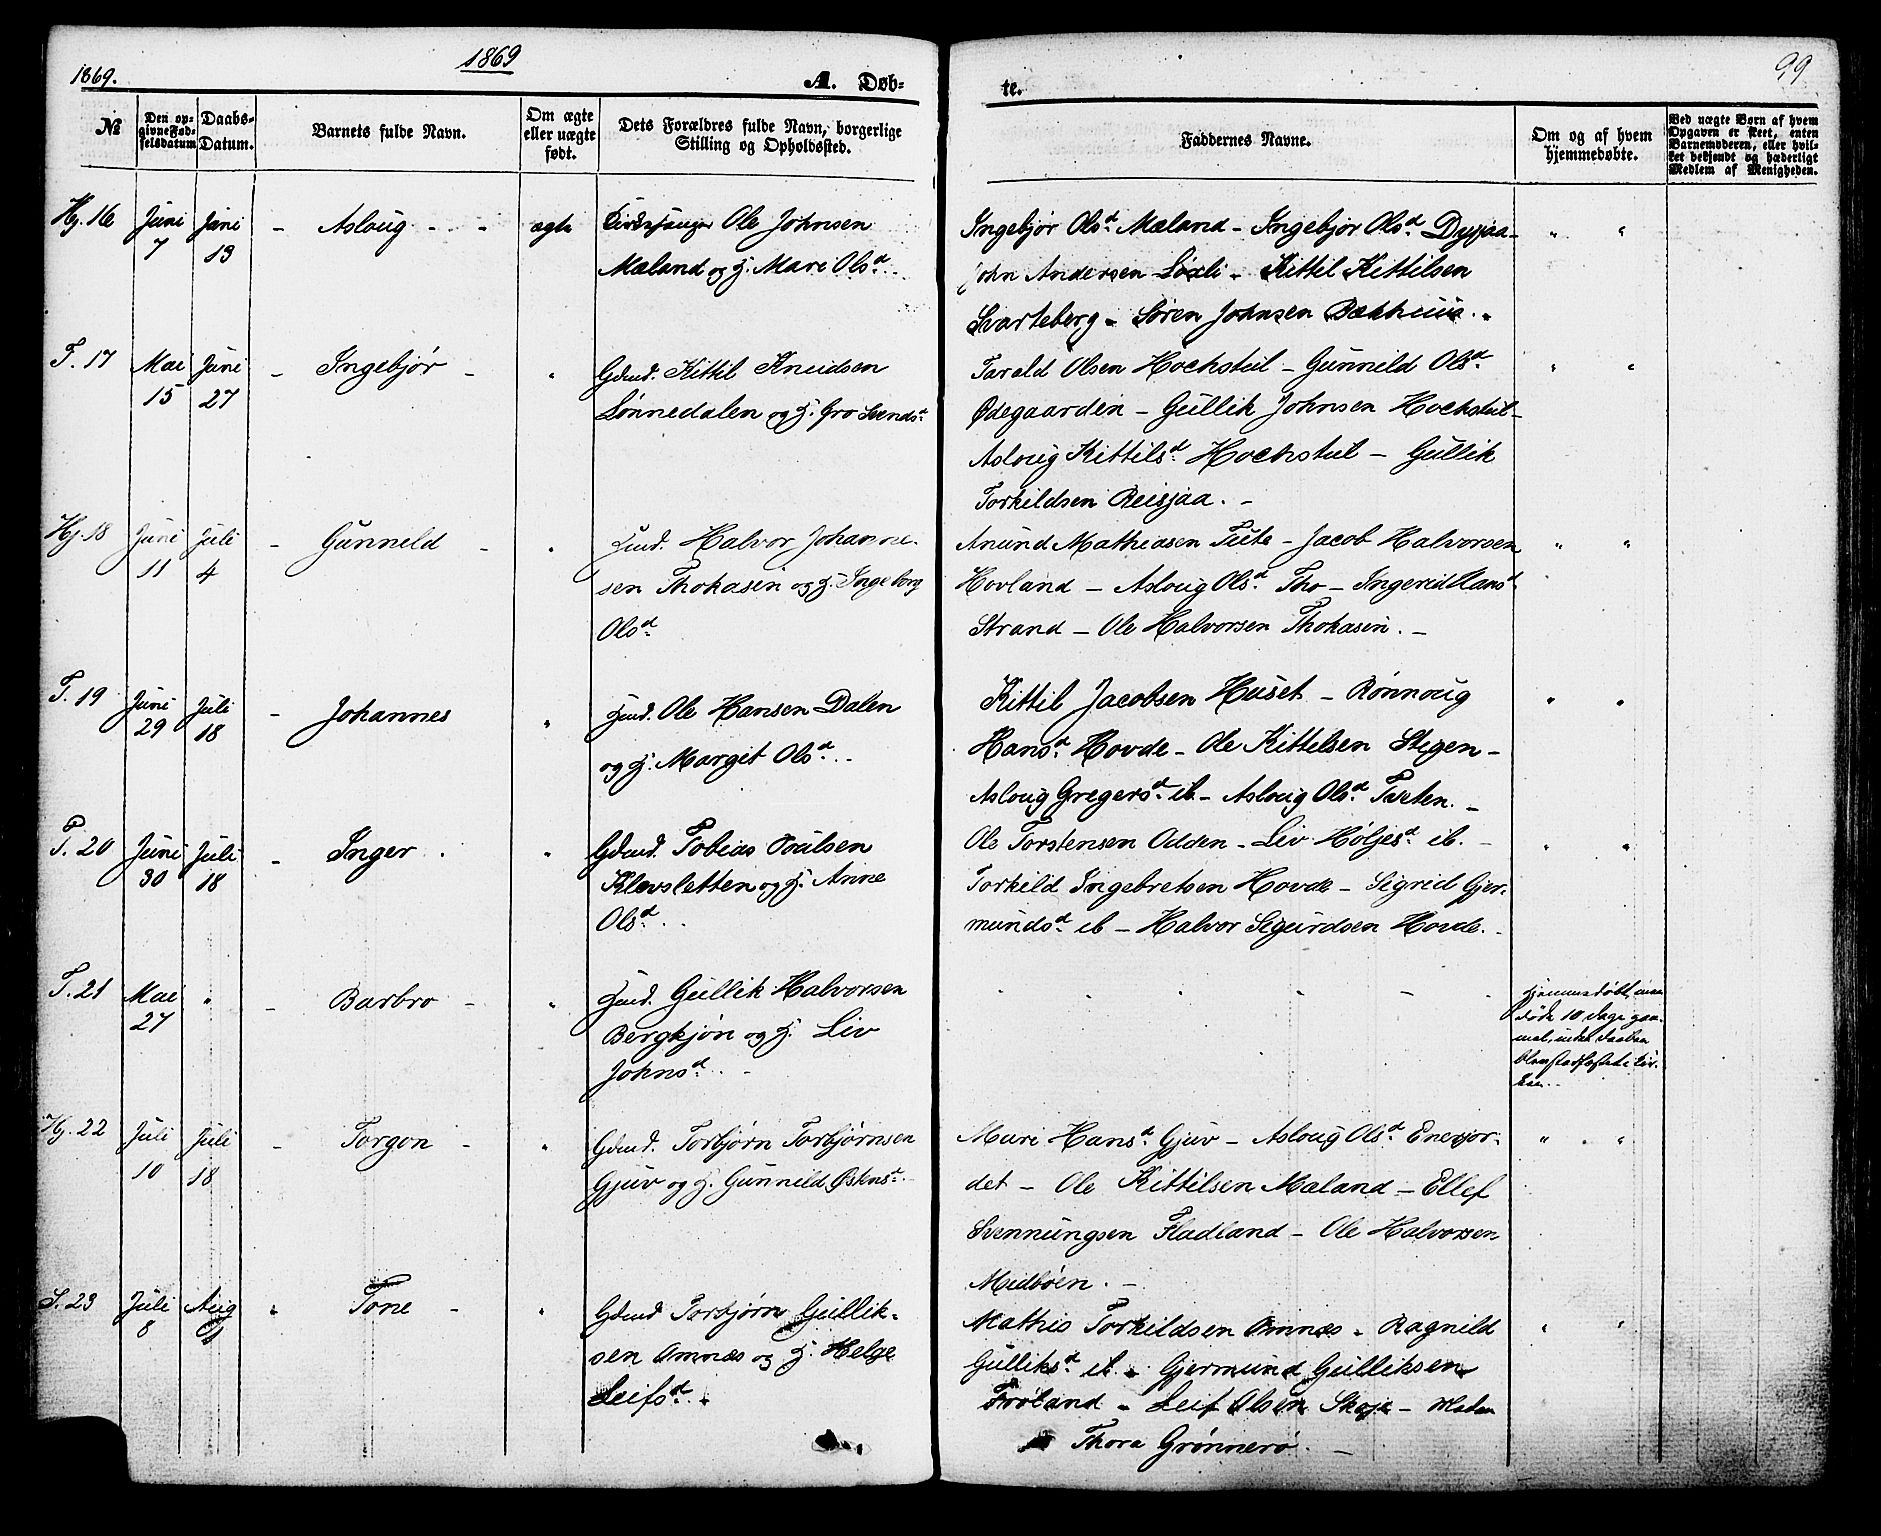 1869.
1869
99
A. Døb-
te.
№
Den op-
givne Fød-
selsdatum
Daabs-
Datum.
Barnets fulde Navn.
Om ægte
eller uægte
født.
Dets Forældres fulde Navn, borgerlige
Stilling og Opholdssted.
Faddernes Navne.
Om og af hvem
hjemmedøbte.
Ved uægte Børn af hvem
Opgaven er skeet, enten
Barnemoderen, eller hvil-
ket bekjendt og hæderligt
Medlem af Menigheden.
Hj. 16 Juni 7 Juni 13 - Asloug - - ægte
Kirkesanger Ole Johnsen
Mæland og H. Mari Olsd.
Ingebjør Olsd. Mæland - Ingebjør Olsd. Dyrjaa -
John Andersen Løxli - Kittil Kittilsen
Svarteberg - Søren Johnsen Bækhuus. -
T. 17 Mai 15 Juni 27 - Ingebjør - "
Gdmd. Kittil Knudsen
Lønnedalen og H. Gro Svendsd.
Tarald Olsen Hochstul - Gunneld Olsd.
Ødegaarden - Gullik Johnsen Hochstul -
Asloug Kittilsd. Hochstul - Gullik
Torkildsen Reisjaa. -
Hj. 18 Juni 11 Juli 4 - Gunneld - "
Hmd. Halvor Johanne-
sen Thokasin og H. Ingeborg
Olsd.
Anund Mathiasen Tute - Jacob Halvorsen
Hovland - Asloug Olsd. Tho - Ingerid Hansd.
Strand - Ole Halvorsen Thokasin. -
T. 19 Juni 29 Juli 18 - Johannes "
Hmd. Ole Hansen Dalen
og H. Margit Olsd.
Kittil Jacobsen Huset - Rønnoug
Hansd. Hovde - Ole Kittelsen Stigen -
Asloug Gregersd. ib. - Asloug Olsd. Tveten. -
T. 20 Juni 30 Juli 18 - Inger "
Gdmd. Tobias Poulsen
Klevsletten og H. Anne
Olsd.
Ole Torstensen Odden - Liv Høljesd. ib. -
Torkild Ingebretsen Hovde - Sigrid Gjer-
mundsd. ib - Halvor Sigurdsen Hovde. -
T. 21 Mai 27 " - Barbro - "
Hmd. Gullik Halvorsen
Bergkjøn og H. Liv
Johnsd. -
hjemmedøbt, men
døde 10 Dage gam-
mel, inden Daaben
blev stadfæstet i Kir-
ken.
Hj. 22 Juli 10 Juli 18 - Torgon - "
Gdmd. Torbjørn Torbjørnsen
Gjuv og H. Gunneld Østensd.
Mari Hansd. Gjuv - Asloug Olsd. Enerjor-
det - Ole Kittilsen Maland - Ellef
Svennungsen Fladland - Ole Halvorsen
Midbøen. -
T. 23 Juli 8 Aug - Tone - "
Gdmd Torbjørn Gullik-
sen Omnæs og H. Helge
Leifsd.
Mathis Torkildsen Omnæs - Ragnild
Gulliksd. ib. - Gjermund Gulliksen
Frøland - Leif Olsen Skoje - Madam
Thora Grønnerø. -